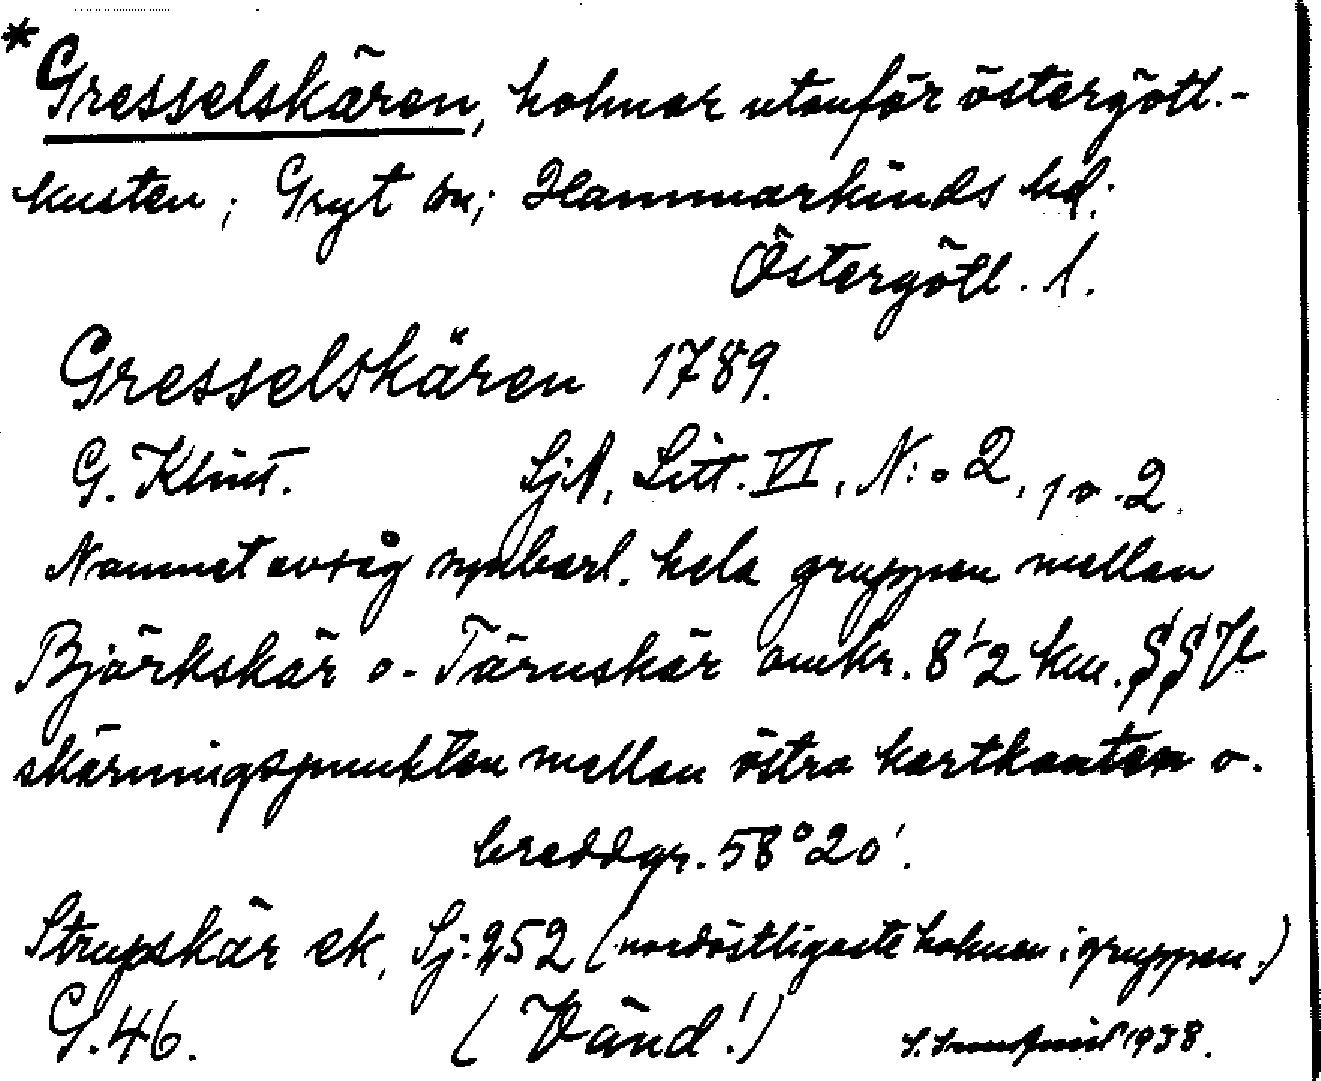 *Gresselskären, holmar utanför östergötl.-
kusten; Gryt sn; Hammarkinds hd;
Östergötl. l.
Gresselskären 1789.
G. Klint. SjA, Litt. VI, N:o 2, 1 o. 2.
Namnet avsåg synbarl. hela gruppen mellan
Björkskär o. Tärnskär omkr. 8 1/2 km. SSV
skärningspunkten mellan östra kartkanten o.
breddgr. 58°20'.
Strupskär ek, Sj: 252 (nordöstligaste holmen i gruppen.)
G. 46. (Vänd!) 1938.